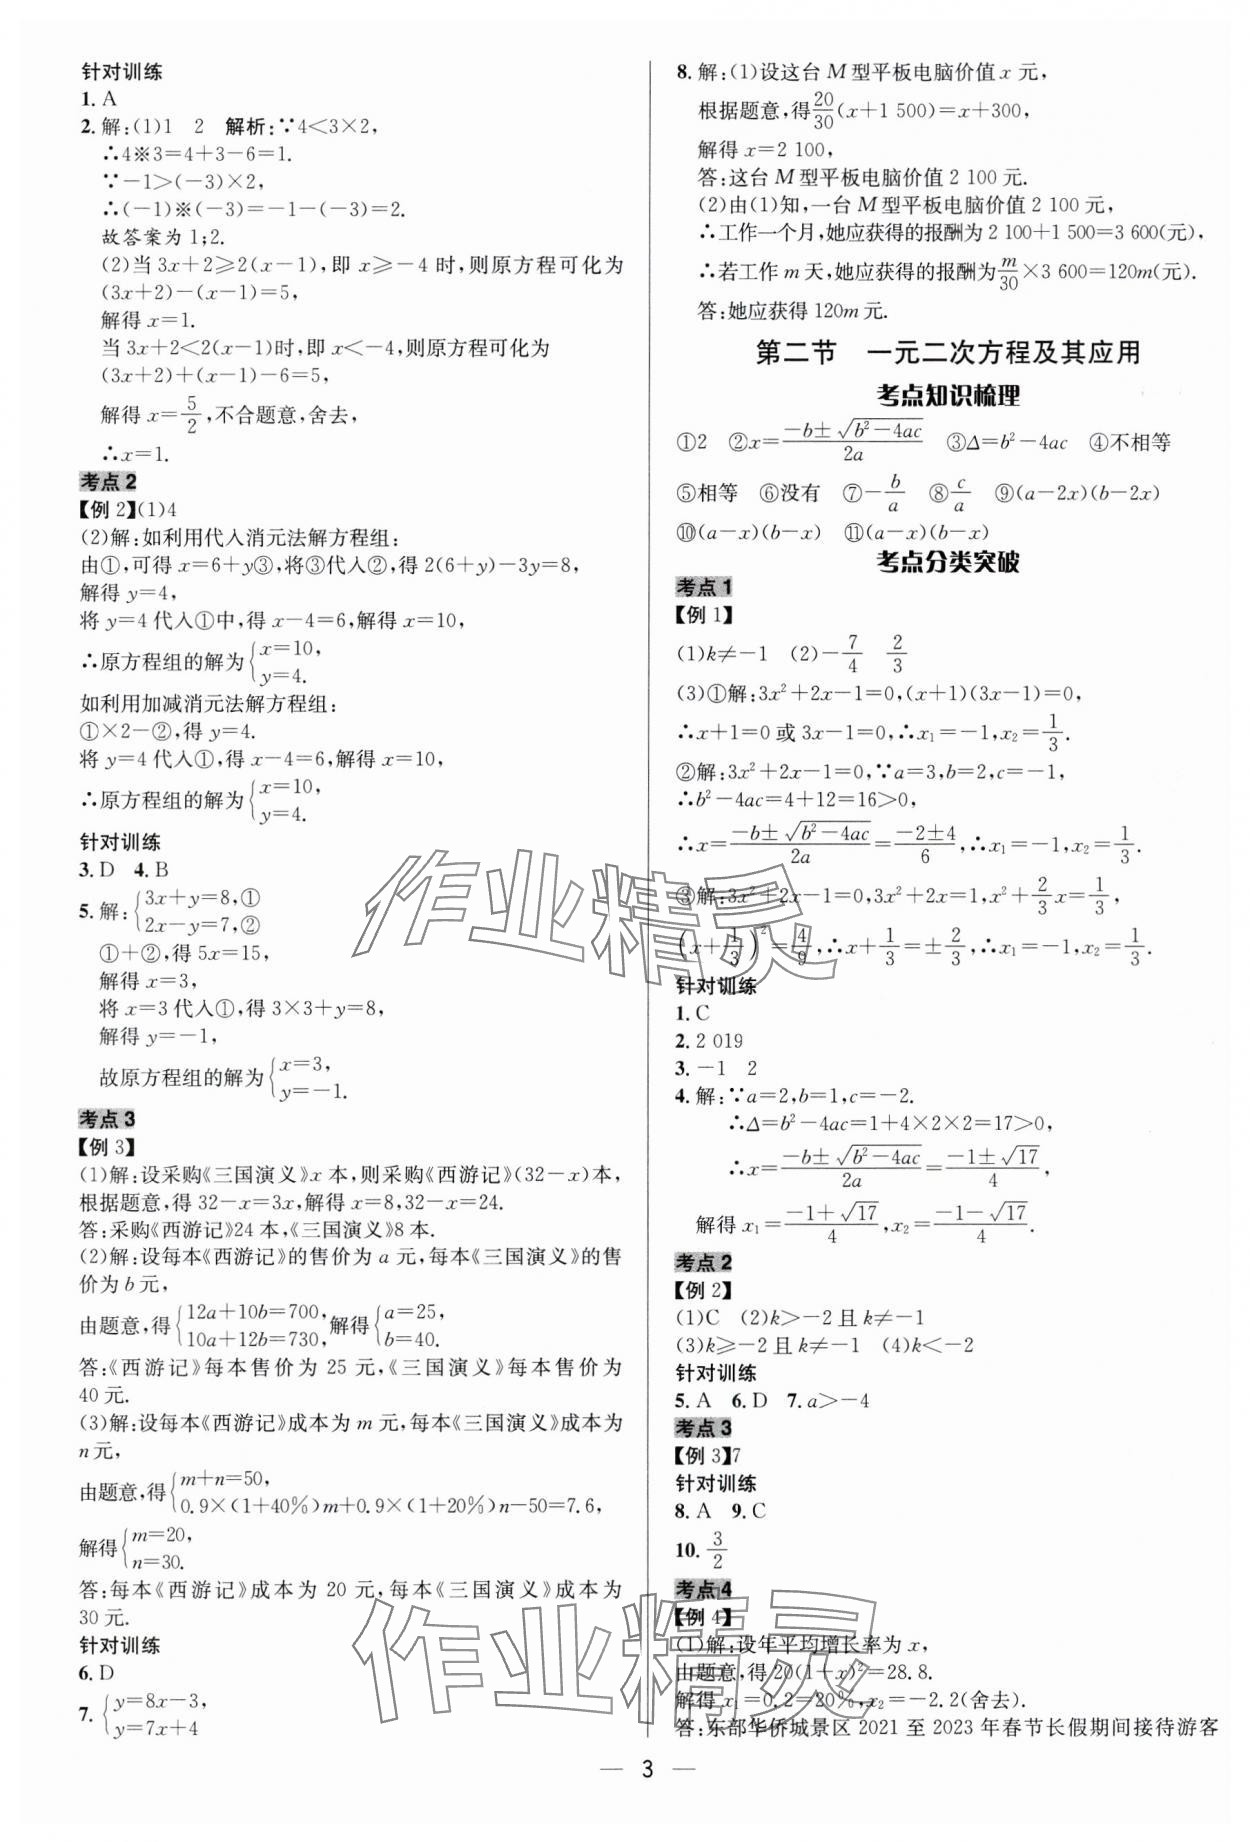 针对训练
1. A
2. 解:(1)1　2　解析:∵4<3×2,
∴4※3=4+3-6=1.
∵-1>(-3)×2,
∴(-1)※(-3)=-1-(-3)=2.
故答案为1;2.
(2)当3x+2≥2(x-1),即x≥-4时,则原方程可化为
(3x+2)-(x-1)=5,
解得x=1.
当3x+2<2(x-1)时,即x<-4,则原方程可化为
(3x+2)+(x-1)-6=5,
解得x=5/2,不合题意,舍去,
∴x=1.
考点2
【例2】(1)4
(2)解:如利用代入消元法解方程组:
由①,可得x=6+y③,将③代入②,得2(6+y)-3y=8,
解得y=4,
将y=4代入①中,得x-4=6,解得x=10,
∴原方程组的解为{x=10, y=4.
如利用加减消元法解方程组:
①×2-②,得y=4.
将y=4代入①,得x-4=6,解得x=10,
∴原方程组的解为{x=10, y=4.
针对训练
3. D　4. B
5. 解:{3x+y=8,① 2x-y=7,②
①+②,得5x=15,
解得x=3,
将x=3代入①,得3×3+y=8,
解得y=-1,
故原方程组的解为{x=3, y=-1.
考点3
【例3】
(1)解:设采购《三国演义》x本,则采购《西游记》(32-x)本,
根据题意,得32-x=3x,解得x=8,32-x=24.
答:采购《西游记》24本,《三国演义》8本.
(2)解:设每本《西游记》的售价为a元,每本《三国演义》的售
价为b元,
由题意,得{12a+10b=700, 10a+12b=730, 解得{a=25, b=40.
答:《西游记》每本售价为25元,《三国演义》每本售价为
40元.
(3)解:设每本《西游记》成本为m元,每本《三国演义》成本为
n元,
由题意,得{m+n=50, 0.9×(1+40%)m+0.9×(1+20%)n-50=7.6,
解得{m=20, n=30.
答:每本《西游记》成本为20元,每本《三国演义》成本为
30元.
针对训练
6. D
7. {y=8x-3, y=7x+4
8. 解:(1)设这台M型平板电脑价值x元,
根据题意,得20/30(x+1 500)=x+300,
解得x=2 100,
答:这台M型平板电脑价值2 100元.
(2)由(1)知,一台M型平板电脑价值2 100元,
∴工作一个月,她应获得的报酬为2 100+1 500=3 600(元),
∴若工作m天,她应获得的报酬为m/30×3 600=120m(元).
答:她应获得120m元.
第二节　一元二次方程及其应用
考点知识梳理
①2　②x=(-b±√(b²-4ac))/2a　③Δ=b²-4ac　④不相等
⑤相等　⑥没有　⑦-b/a　⑧c/a　⑨(a-2x)(b-2x)
⑩(a-x)(b-x)　⑪(a-x)(b-x)
考点分类突破
考点1
【例1】
(1)k≠-1　(2)-7/4　2/3
(3)①解:3x²+2x-1=0,(x+1)(3x-1)=0,
∴x+1=0或3x-1=0,∴x₁=-1,x₂=1/3.
②解:3x²+2x-1=0,∵a=3,b=2,c=-1,
∴b²-4ac=4+12=16>0,
∴x=(-b±√(b²-4ac))/2a=(-2±4)/6,∴x₁=-1,x₂=1/3.
③解:3x²+2x-1=0,3x²+2x=1,x²+2/3x=1/3,
(x+1/3)²=4/9,∴x+1/3=±2/3,∴x₁=-1,x₂=1/3.
针对训练
1. C
2. 2 019
3. -1　2
4. 解:∵a=2,b=1,c=-2.
∴Δ=b²-4ac=1+4×2×2=17>0,
∴x=(-b±√(b²-4ac))/2a=(-1±√17)/4,
解得x₁=(-1+√17)/4,x₂=(-1-√17)/4.
考点2
【例2】
(1)C　(2)k>-2且k≠-1
(3)k≥-2且k≠-1　(4)k<-2
针对训练
5. A　6. D　7. a>-4
考点3
【例3】7
针对训练
8. A　9. C
10. 3/2
考点4
【例4】
(1)解:设年平均增长率为x,
由题意,得20(1+x)²=28.8.
解得x₁=0.2=20%,x₂=-2.2(舍去).
答:东部华侨城景区2021至2023年春节长假期间接待游客
— 3 —
作业精灵
作业精灵